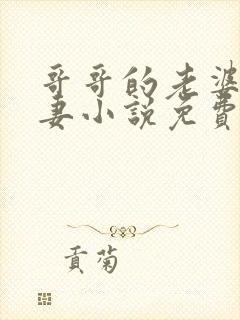 哥哥的老婆
妻小說免費
貢菊